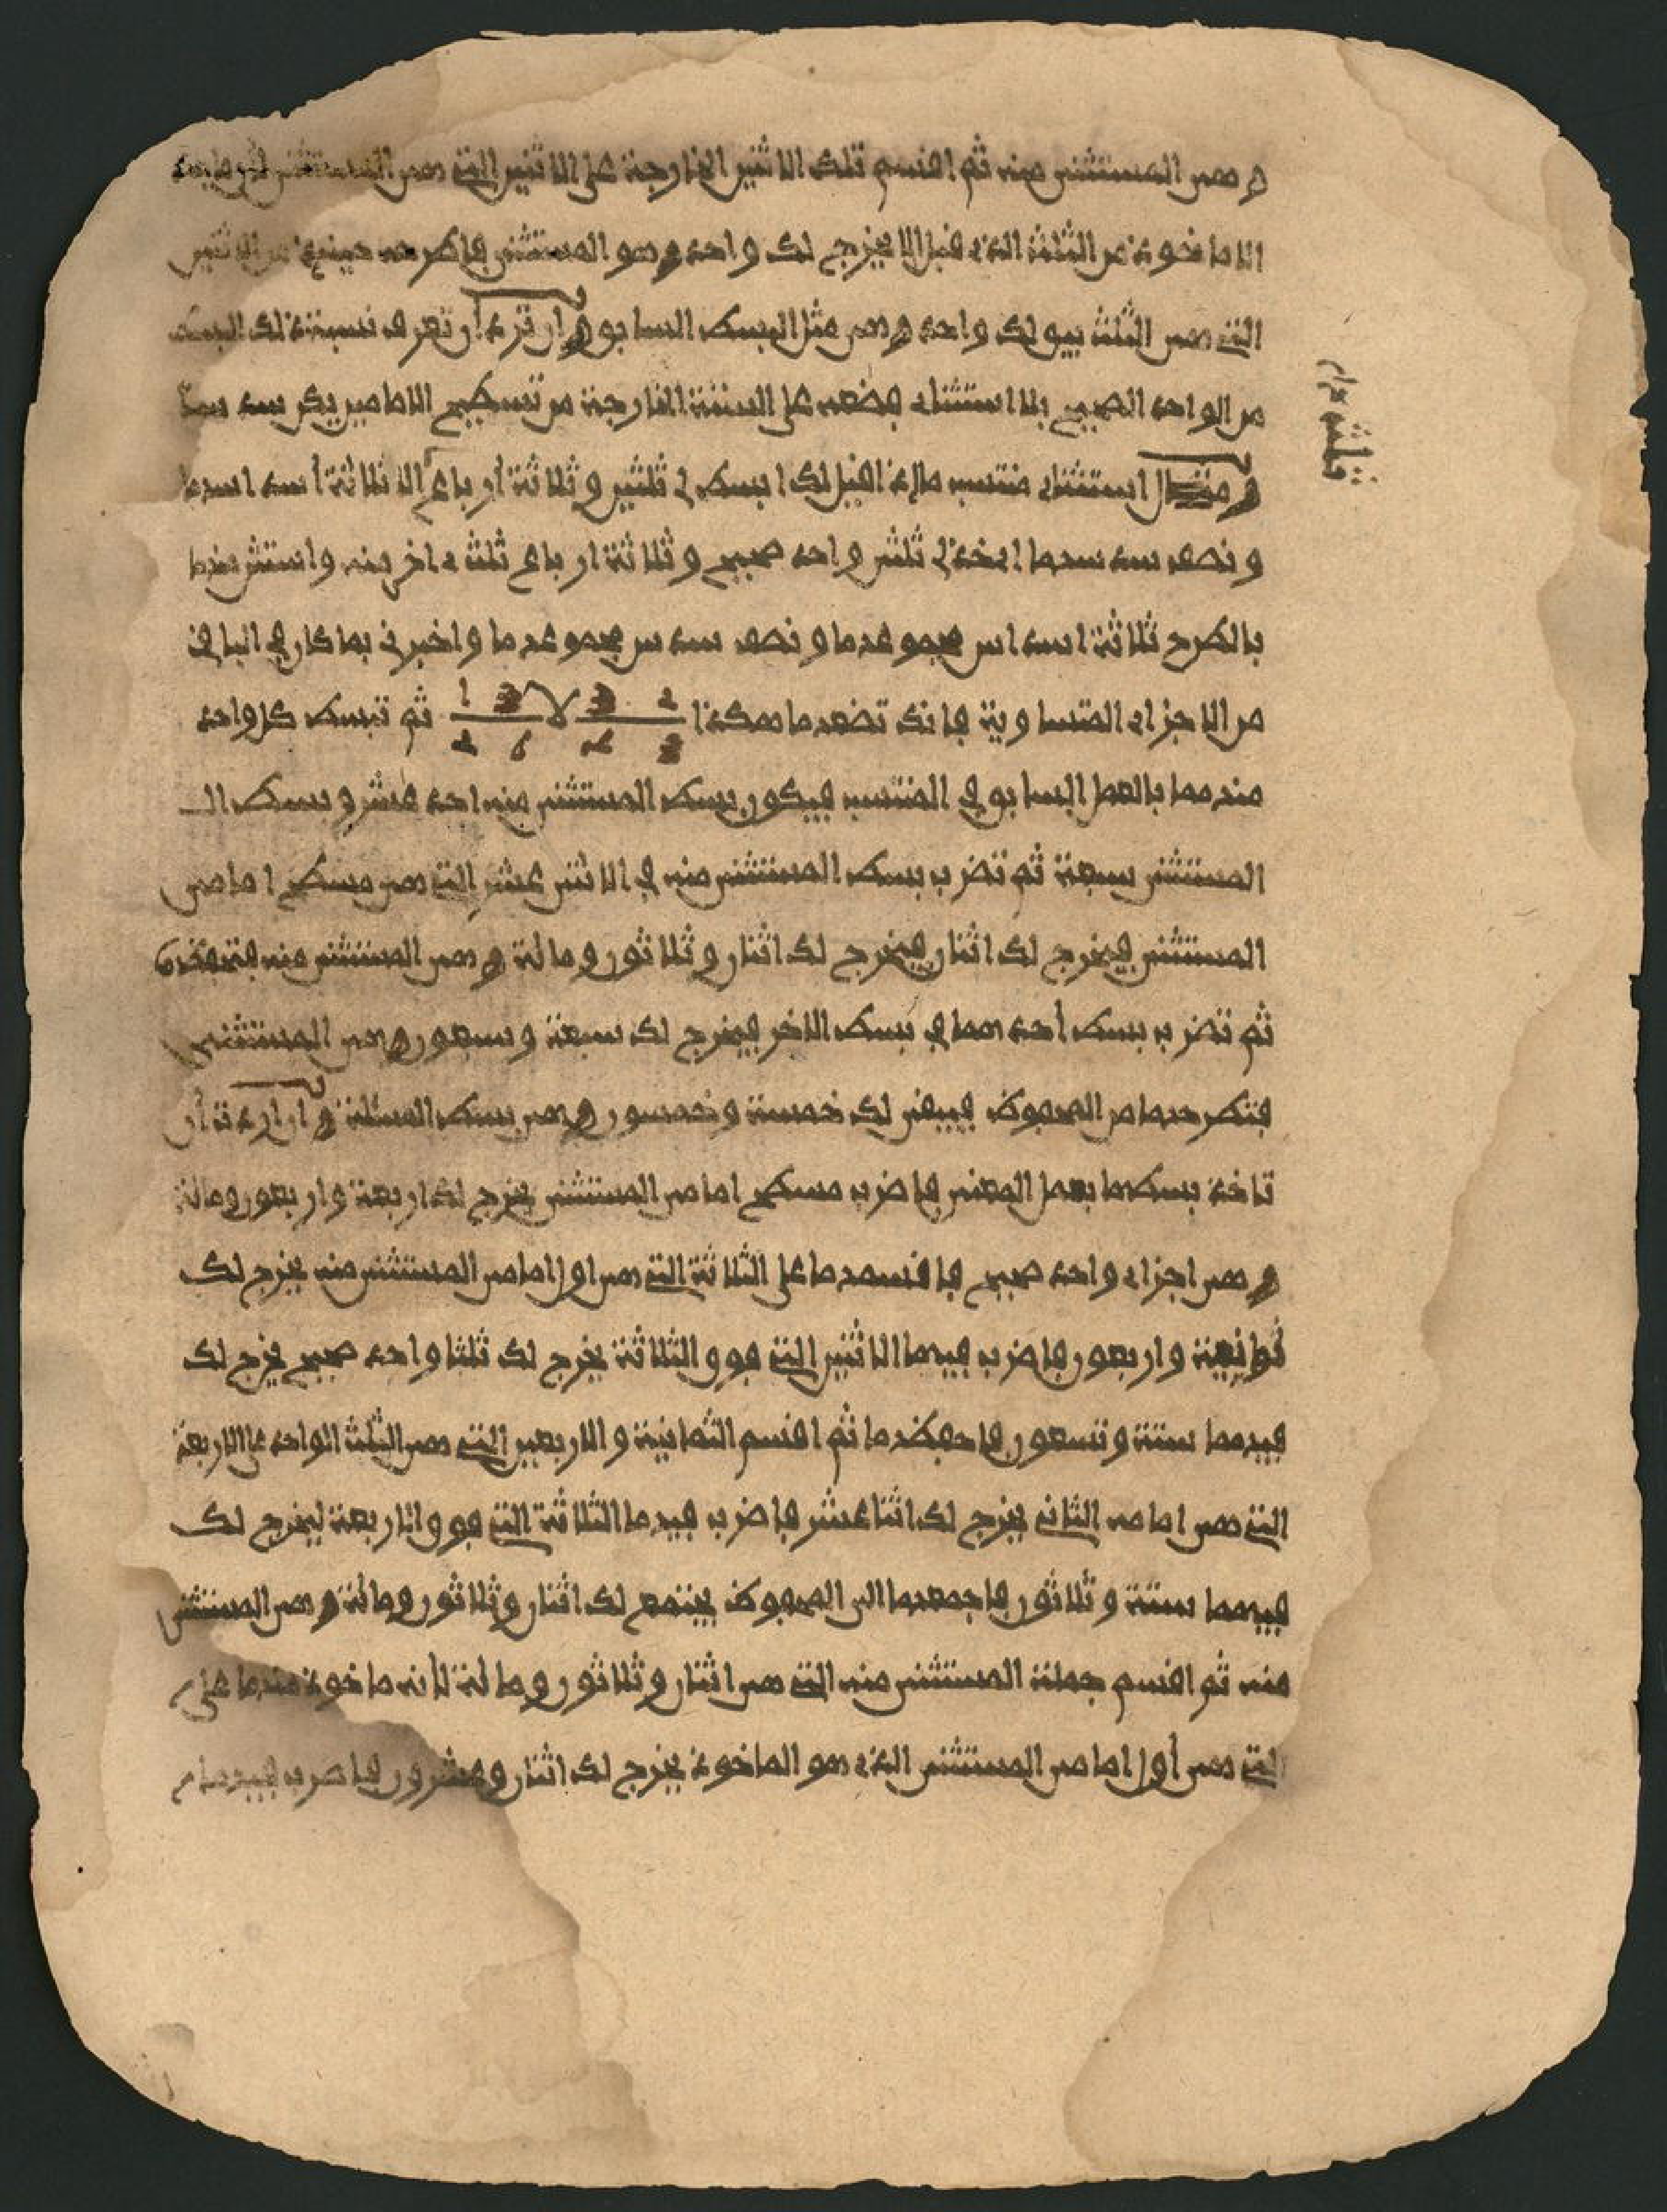 وهي المستثنى منه ثم اقسم تلك الاثنين الخارجة على الاثنين التي هي المستثنى
الماخوذ من الثلث الذي قبل الا يخرج لك واحد وهو المستثنى فاطرحه حينئذ من الاثنين
التي هي الثلث يبق لك واحد وهي مثل البسط السابق وان ترد ان تعرف نسبة ذلك البسط
من الواحد الصحيح بلا استثناء فضعه على الستة الخارجة من تسطيح الامامين يكن سدسا
ومثال استثناء منتسب ما اذا قيل لك ابسط لي ثلثين وثلاثة ارباع الا ثلاثة اسداس
ونصف سدسها اي خذ لي ثلثي واحد صحيح وثلاثة ارباع ثلث ءاخر منه واستثن منها
بالطرح ثلاثة اسداس مجموعها ونصف سدس مجموعها واخبرني بما كان في الباقي
من الاجزاء المتساوية فانك تضعها هكذا 2 3 لا 3 1 ثم تبسط كل واحد
3 4 6 2
منهما بالعمل السابق في المنتسب فيكون بسط المستثنى منه احد عشر وبسط ال
المستثنى سبعة ثم تضرب بسط المستثنى منه في الاثني عشر التي هي مسطح امامي
المستثنى فيخرج لك اثنان فيخرج لك اثنان وثلاثون ومائة وهي المستثنى منه
ثم تضرب بسط أحدهما في بسط الاخر فيخرج لك سبعة وسبعون وهي المستثنى
فتطرحها من المحفوظ فيبقى لك خمسة وخمسون وهي بسط المسئلة وان اردت أن
تاخذ بسطها بعمل المعنى فاضرب مسطح امامي المستثنى يخرج لك اربعة واربعون ومائة
وهي اجزاء واحد صحيح فاقسمها على الثلاثة التي هي اول امامي المستثنى منه يخرج لك
ثمانية واربعون فاضرب فيها الاثنين التي فوق الثلاثة يخرج لك ثلثا واحد صحيح يخرج لك
فيهما ستة وتسعون فاحفظها ثم اقسم الثمانية والاربعين التي هي الثلث الواحد على الاربعة
التي هي امامه الثاني يخرج لك اثنا عشر فاضرب فيها الثلاثة التي فوق الاربعة يخرج لك
فيهما ستة وثلاثون فاجمعها الى المحفوظ يجتمع لك اثنان وثلاثون ومائة وهي المستثنى
منه ثم اقسم جملة المستثنى منه التي هي اثنان وثلاثون ومائة لأنه ماخوذ منها على
التي هي أول امامي المستثنى الذي هو الماخوذ يخرج لك اثنان وعشرون فاضرب فيها